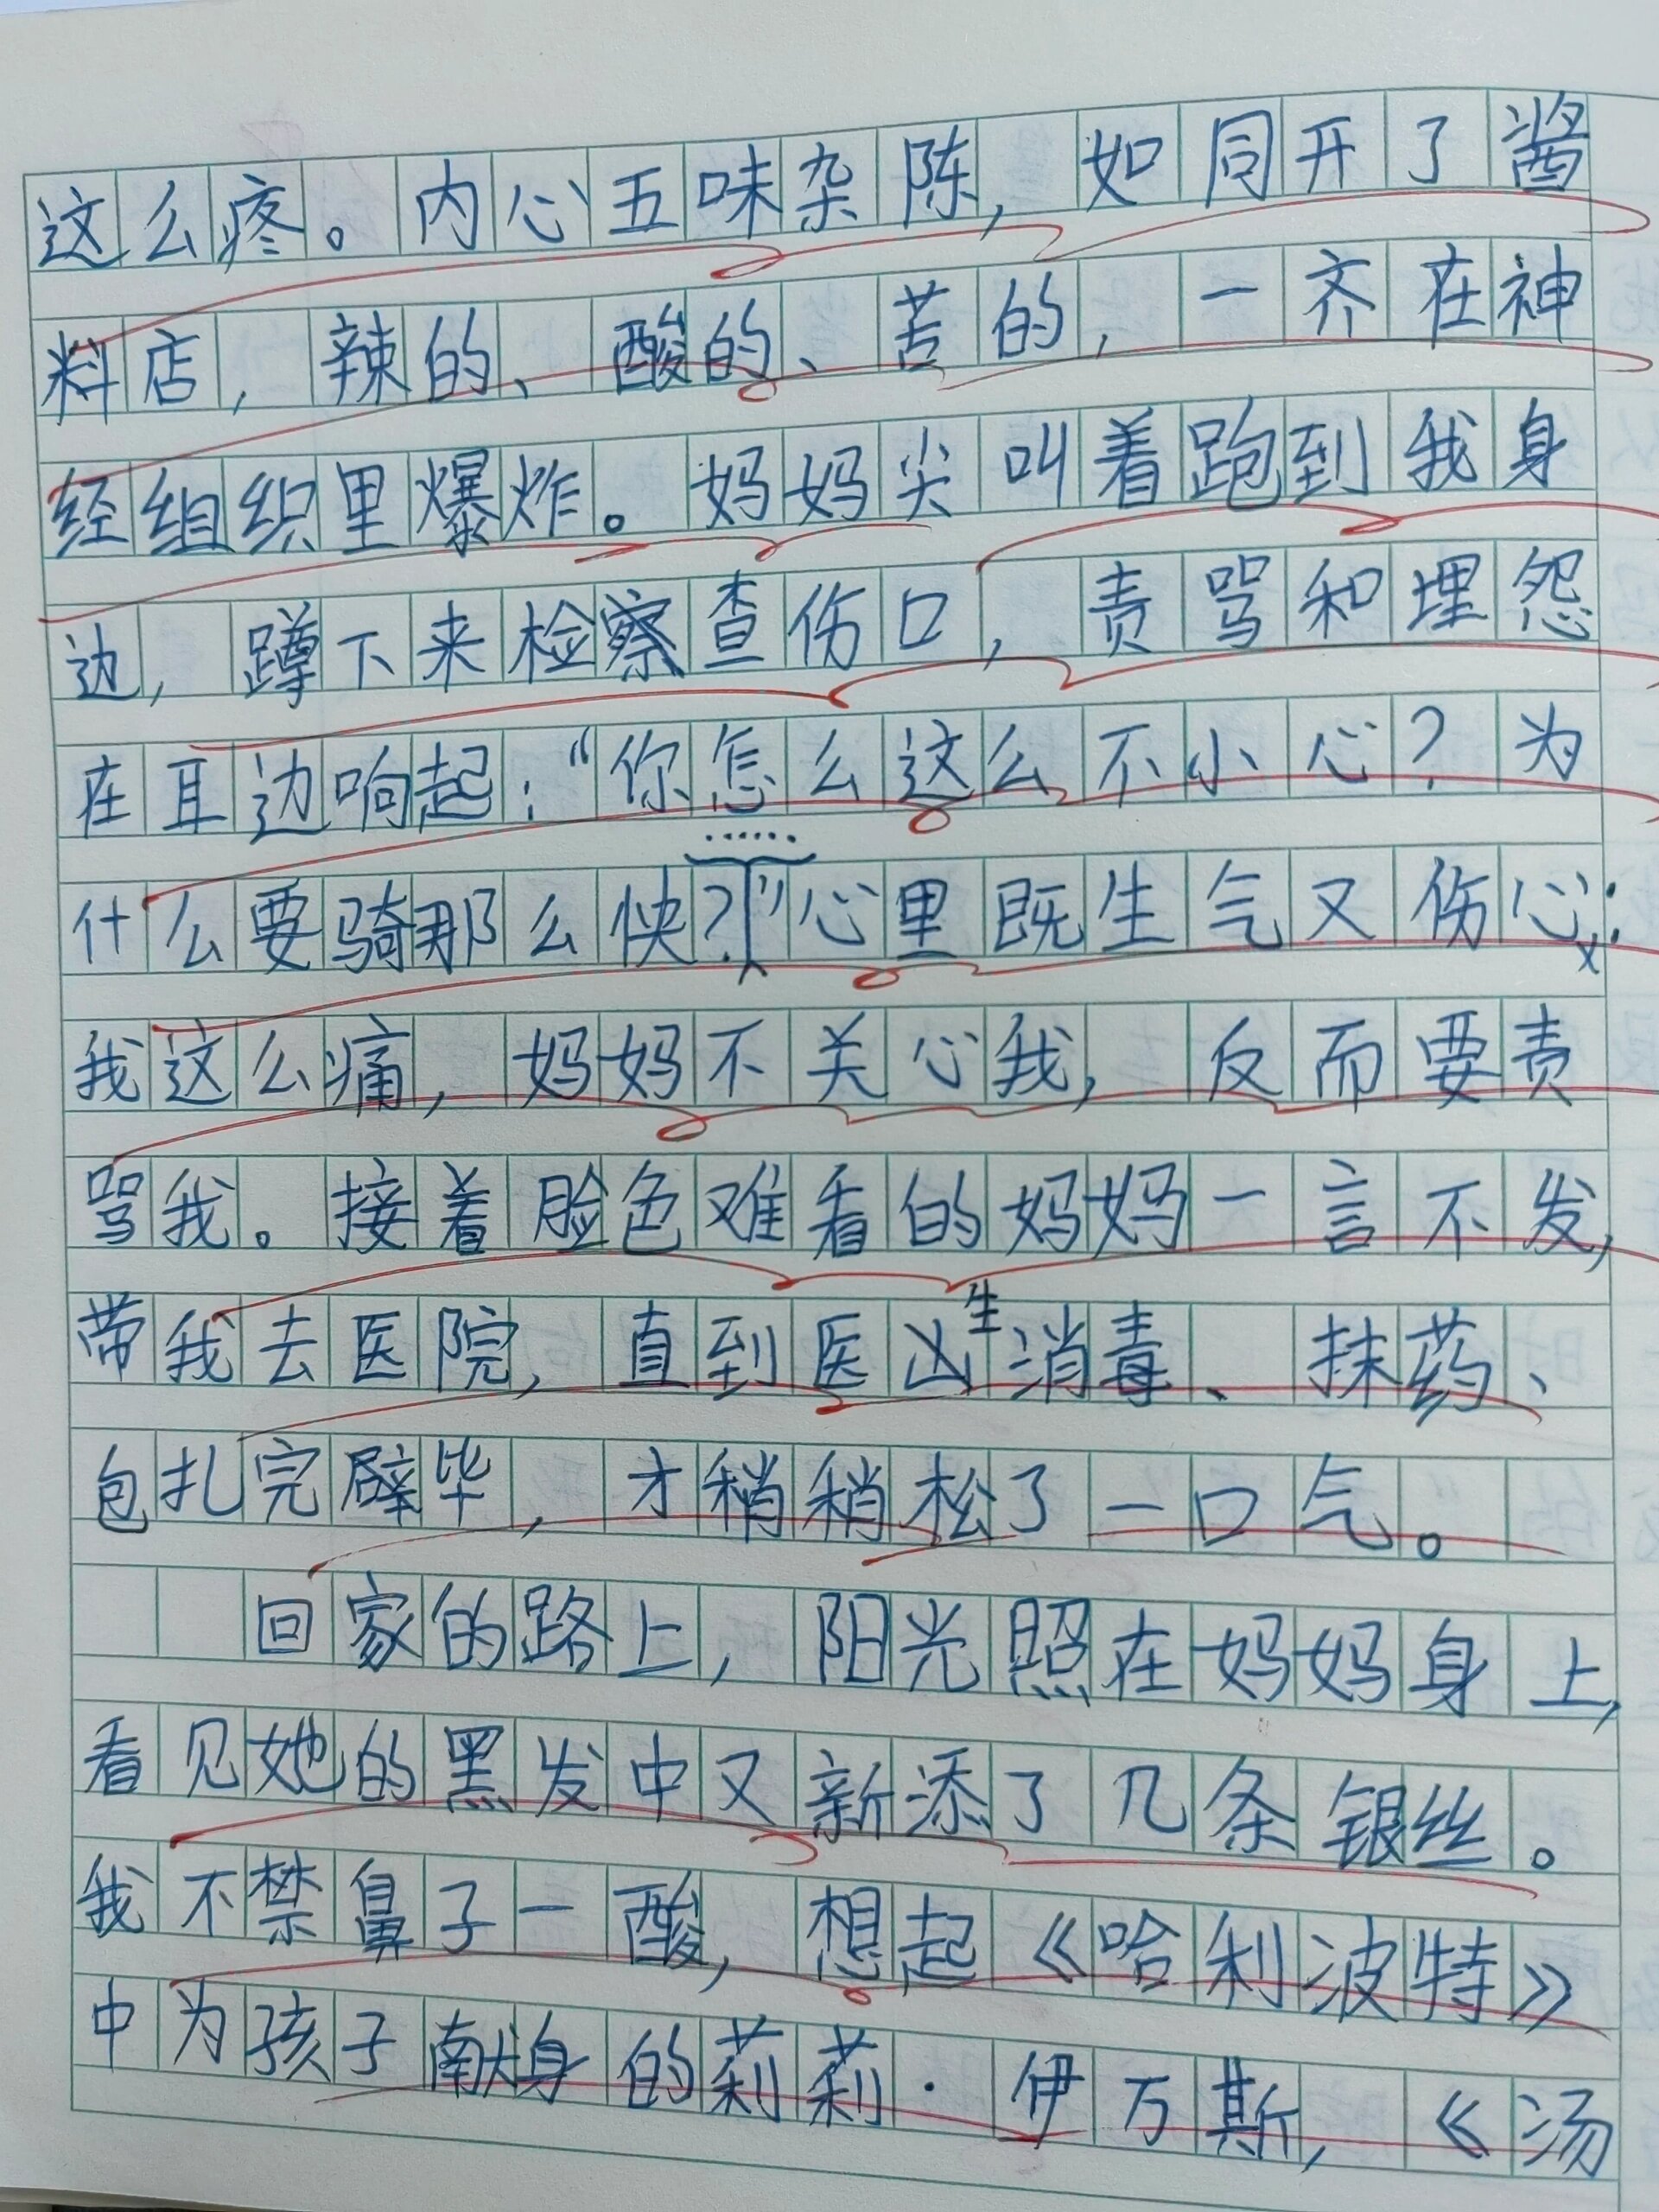 这么疼。内心五味杂陈，如同开了酱
料店，辣的、酸的、苦的，一齐在神
经组织里爆炸。妈妈尖叫着跑到我身
边，蹲下来检察查伤口，责骂和埋怨
在耳边响起：“你怎么这么不小心？为
什么要骑那么快？……”心里既生气又伤心：
我这么痛，妈妈不关心我，反而要责
骂我。接着脸色难看的妈妈一言不发，
带我去医院，直到医生消毒、抹药、
包扎完毕，才稍稍松了一口气。
回家的路上，阳光照在妈妈身上，
看见她的黑发中又新添了几条银丝。
我不禁鼻子一酸，想起《哈利波特》
中为孩子献身的莉莉·伊万斯，《汤